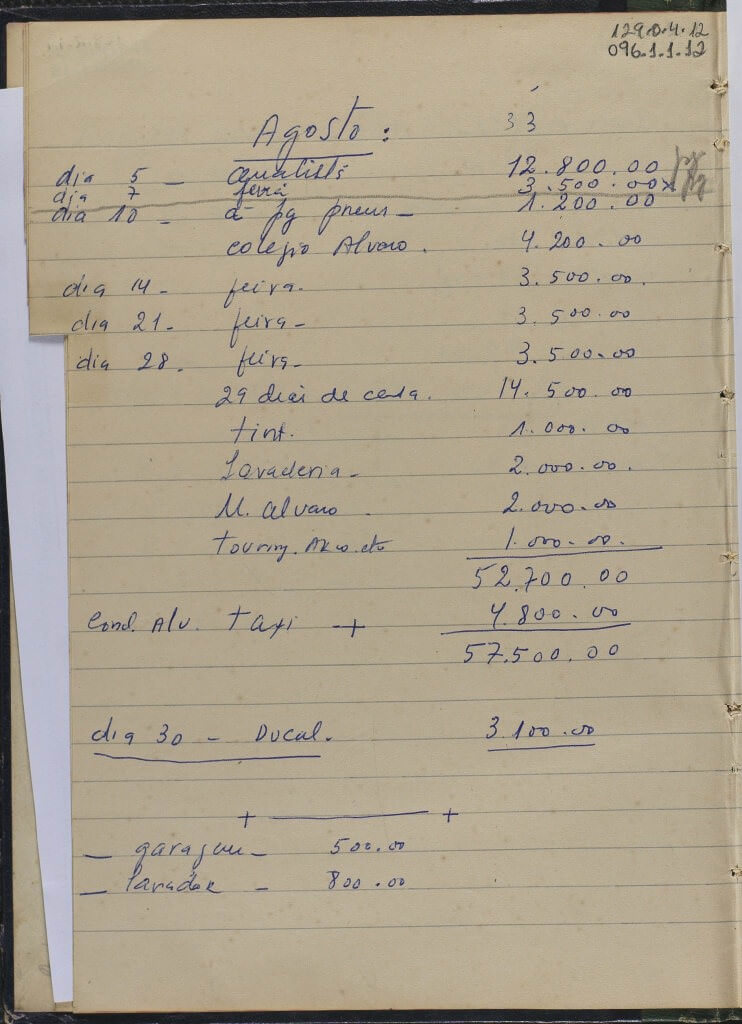 129.0.4.12
096.1.1.12
Agosto: 33
dia 5 - analista 12.800.00
dia 7 feira 3.500.00x pg
dia 10 - a pg pneus - 1.200.00
colegio Alvaro. 4.200.00
dia 14 - feira. 3.500.00.
dia 21 - feira - 3.500.00
dia 28 - feira - 3.500.00
29 dias de 14.500.00
tint. 1.000.00
Lavaderia - 2.000.00.
M. Alvaro - 2.000.00
Touring. etc 1.000.00.
52.700.00
Cond. Alv. taxi + 4.800.00
57.500.00
dia 30 - Ducal. 3.100.00
+ ——— +
- garagem - 500.00
- lavador - 800.00